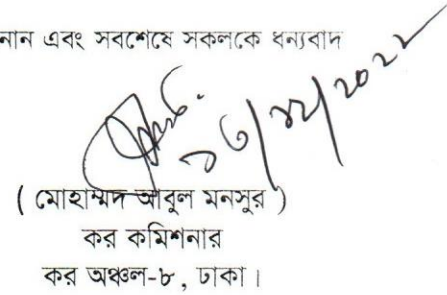 নান এবং সবশেষে সকলকে ধন্যবাদ
( মোহাম্মদ আবুল মনসুর )
কর কমিশনার
কর অঞ্চল-৮, ঢাকা।